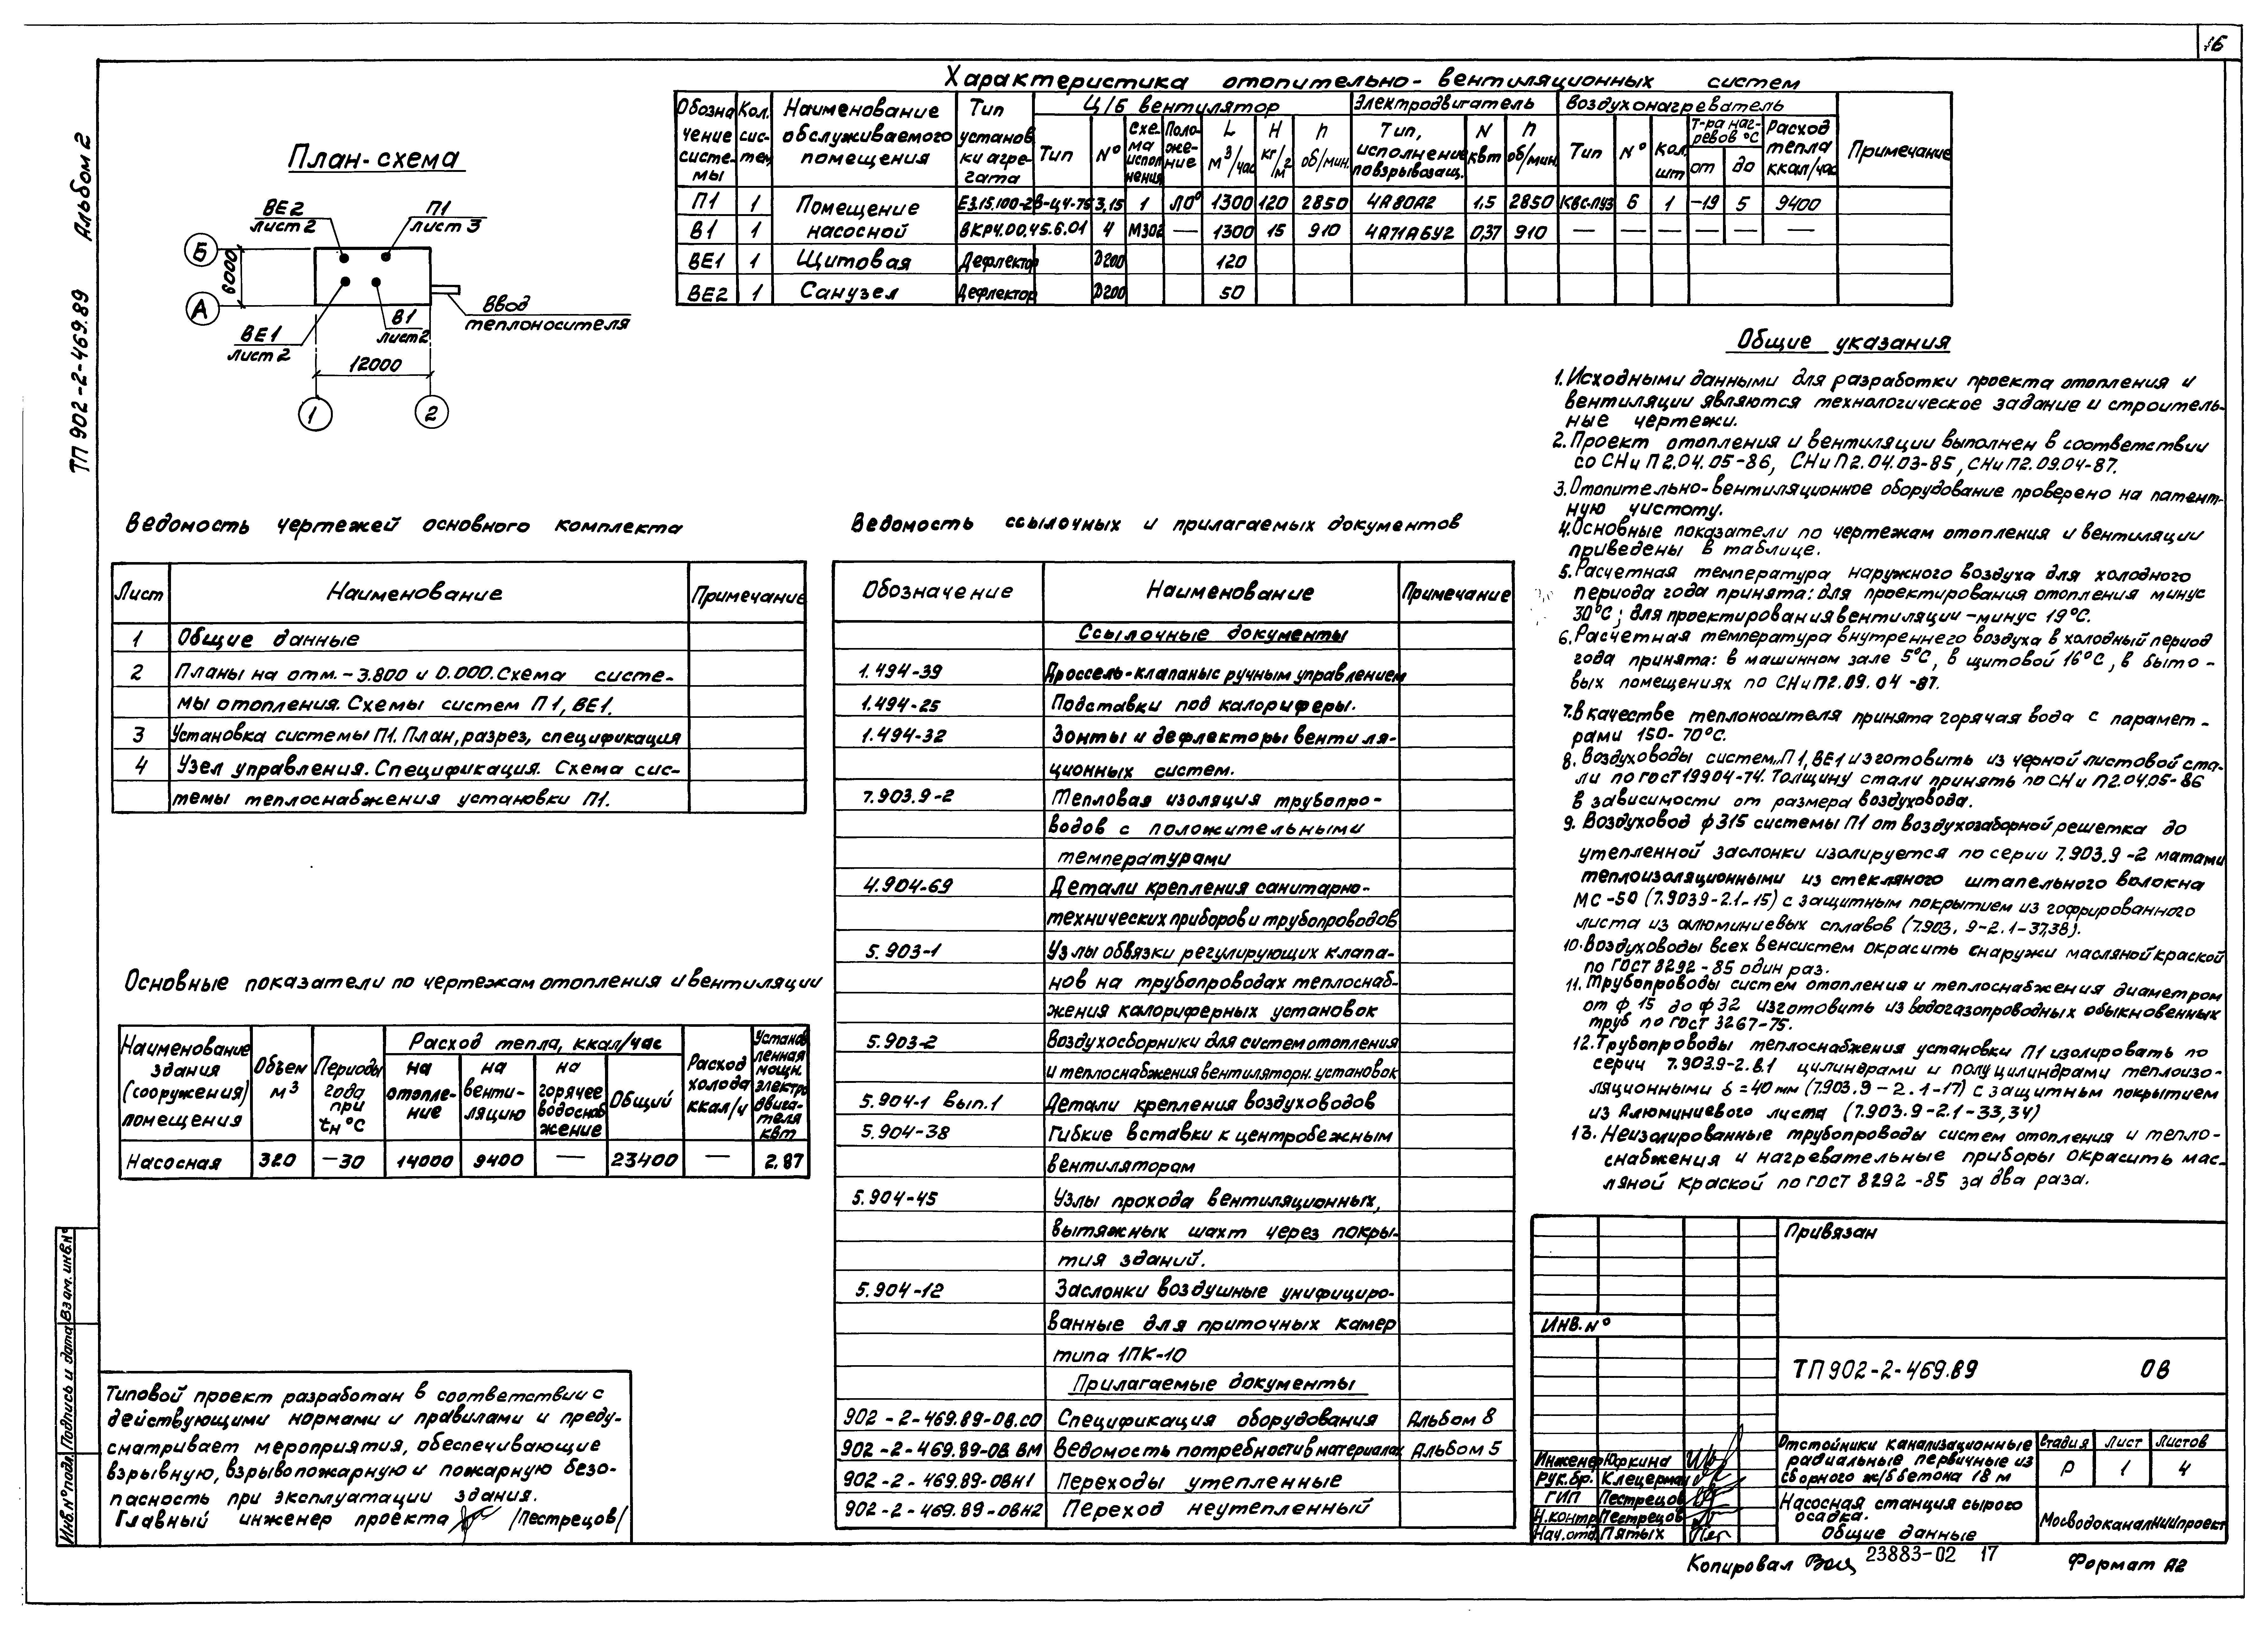 16
ТП 902-2-469.89 Альбом 2
План-схема
ВЕ2
лист 2
П1
лист 3
Б
А
6000
ВЕ1
лист 2
В1
лист 2
Ввод
теплоносителя
12000
1
2
Характеристика отопительно-вентиляционных систем
Обозначение системы | Кол. систем | Наименование обслуживаемого помещения | Тип установки агрегата | Ц/Б вентилятор | Электродвигатель | Воздухонагреватель | Примечание
Тип | N° | Схема исполнения | Положение | L м³/час | H кг/м² | n об/мин. | Тип, исполнение по взрывозащ. | N квт | n об/мин. | Тип | N° | Кол. шт | Т-ра нагревов °С от | до | Расход тепла ккал/час
П1 | 1 | Помещение | Е3.15.100-2 | В-Ц4-75 | 3,15 | 1 | Л0° | 1300 | 120 | 2850 | 4А80А2 | 1.5 | 2850 | КВС-ПУЗ | 6 | 1 | -19 | 5 | 9400
В1 | 1 | насосной | ВКР4.00.45.6.01 | 4 | М302 | — | 1300 | 15 | 910 | 4А71А6У2 | 0,37 | 910 | — | — | — | — | — | —
ВЕ1 | 1 | Щитовая | Дефлектор | D200 | 120
ВЕ2 | 1 | Санузел | Дефлектор | D200 | 50
Ведомость чертежей основного комплекта
Лист | Наименование | Примечание
1 | Общие данные
2 | Планы на отм. -3.800 и 0.000. Схема систе-
мы отопления. Схемы систем П1, ВЕ1.
3 | Установка системы П1. План, разрез, спецификация
4 | Узел управления. Спецификация. Схема сис-
темы теплоснабжения установки П1.
Основные показатели по чертежам отопления и вентиляции
Наименование здания (сооружения) помещения | Объем м³ | Периоды года при tн °С | Расход тепла, ккал/час | Расход холода ккал/ч | Установленная мощн. электродвигателя квт
на отопление | на вентиляцию | на горячее водоснабжение | Общий
Насосная | 320 | -30 | 14000 | 9400 | — | 23400 | — | 2.87
Типовой проект разработан в соответствии с
действующими нормами и правилами и преду-
сматривает мероприятия, обеспечивающие
взрывную, взрывопожарную и пожарную безо-
пасность при эксплуатации здания.
Главный инженер проекта /Пестрецов/
Ведомость ссылочных и прилагаемых документов
Обозначение | Наименование | Примечание
Ссылочные документы
1.494-39 | Дроссель-клапаны с ручным управлением
1.494-25 | Подставки под калориферы.
1.494-32 | Зонты и дефлекторы вентиля-
ционных систем.
7.903.9-2 | Тепловая изоляция трубопро-
водов с положительными
температурами
4.904-69 | Детали крепления санитарно-
технических приборов и трубопроводов
5.903-1 | Узлы обвязки регулирующих клапа-
нов на трубопроводах теплоснаб-
жения калориферных установок
5.903-2 | Воздухосборники для систем отопления
и теплоснабжения вентиляторн. установок
5.904-1 Вып.1 | Детали крепления воздуховодов
5.904-38 | Гибкие вставки к центробежным
вентиляторам
5.904-45 | Узлы прохода вентиляционных,
вытяжных шахт через покры-
тия зданий.
5.904-12 | Заслонки воздушные унифициро-
ванные для приточных камер
типа 1ПК-10
Прилагаемые документы
902-2-469.89-ОВ.СО | Спецификация оборудования | Альбом 8
902-2-469.89-ОВ ВМ | Ведомость потребности в материалах | Альбом 5
902-2-469.89-ОВН1 | Переходы утепленные
902-2-469.89-ОВН2 | Переход неутепленный
Общие указания
1. Исходными данными для разработки проекта отопления и
вентиляции являются технологическое задание и строитель-
ные чертежи.
2. Проект отопления и вентиляции выполнен в соответствии
со СНиП 2.04.05-86, СНиП 2.04.03-85, СНиП 2.09.04-87.
3. Отопительно-вентиляционное оборудование проверено на патент-
ную чистоту.
4. Основные показатели по чертежам отопления и вентиляции
приведены в таблице.
5. Расчетная температура наружного воздуха для холодного
периода года принята: для проектирования отопления минус
30°С; для проектирования вентиляции - минус 19°С.
6. Расчетная температура внутреннего воздуха в холодный период
года принята: в машинном зале 5°С, в щитовой 16°С, в быто-
вых помещениях по СНиП 2.09.04-87.
7. В качестве теплоносителя принята горячая вода с парамет-
рами 150-70°С.
8. Воздуховоды систем П1, ВЕ1 изготовить из черной листовой ста-
ли по ГОСТ 19904-74. Толщину стали принять по СНиП 2.04.05-86
в зависимости от размера воздуховода.
9. Воздуховод ф315 системы П1 от воздухозаборной решетка до
утепленной заслонки изолируется по серии 7.903.9-2 матами
теплоизоляционными из стекляного штапельного волокна
МС-50 (7.9039-2.1-15) с защитным покрытием из гофрированного
листа из алюминиевых сплавов (7.903.9-2.1-37,38).
10. Воздуховоды всех венсистем окрасить снаружи масляной краской
по ГОСТ 8292-85 один раз.
11. Трубопроводы систем отопления и теплоснабжения диаметром
от ф 15 до ф 32 изготовить из водогазопроводных обыкновенных
труб по ГОСТ 3267-75.
12. Трубопроводы теплоснабжения установки П1 изолировать по
серии 7.9039-2.в.1 цилиндрами и полуцилиндрами теплоизо-
ляционными δ=40мм (7.903.9-2.1-17) с защитным покрытием
из алюминиевого листа (7.903.9-2.1-33,34)
13. Неизолированные трубопроводы систем отопления и тепло-
снабжения и нагревательные приборы окрасить мас-
ляной краской по ГОСТ 8292-85 за два раза.
Привязан
Инв. N°
ТП 902-2-469.89 ОВ
Инженер Юфкина
Рук.бр. Клецерман
ГИП Пестрецов
Н.контр Пестрецов
Нач.отд. Пятых
Отстойники канализационные
радиальные первичные из
сборного ж/бетона 18 м
Стадия | Лист | Листов
Р | 1 | 4
Насосная станция сырого
осадка.
Общие данные
МосводоканалНИИпроект
Копировал 23883-02 17 Формат А2
Инв.N°подл. Подпись и дата Взам. инв.N°